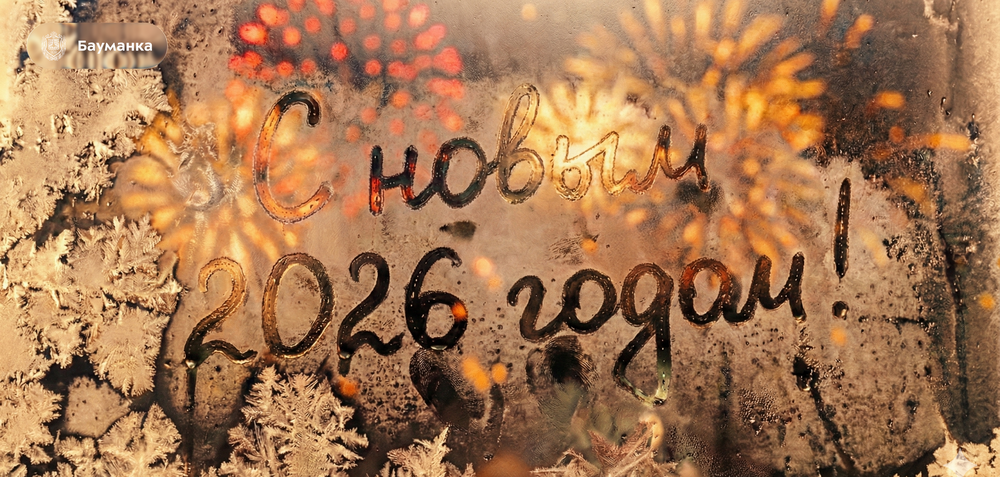 Бауманка
С новым
2026 годом!